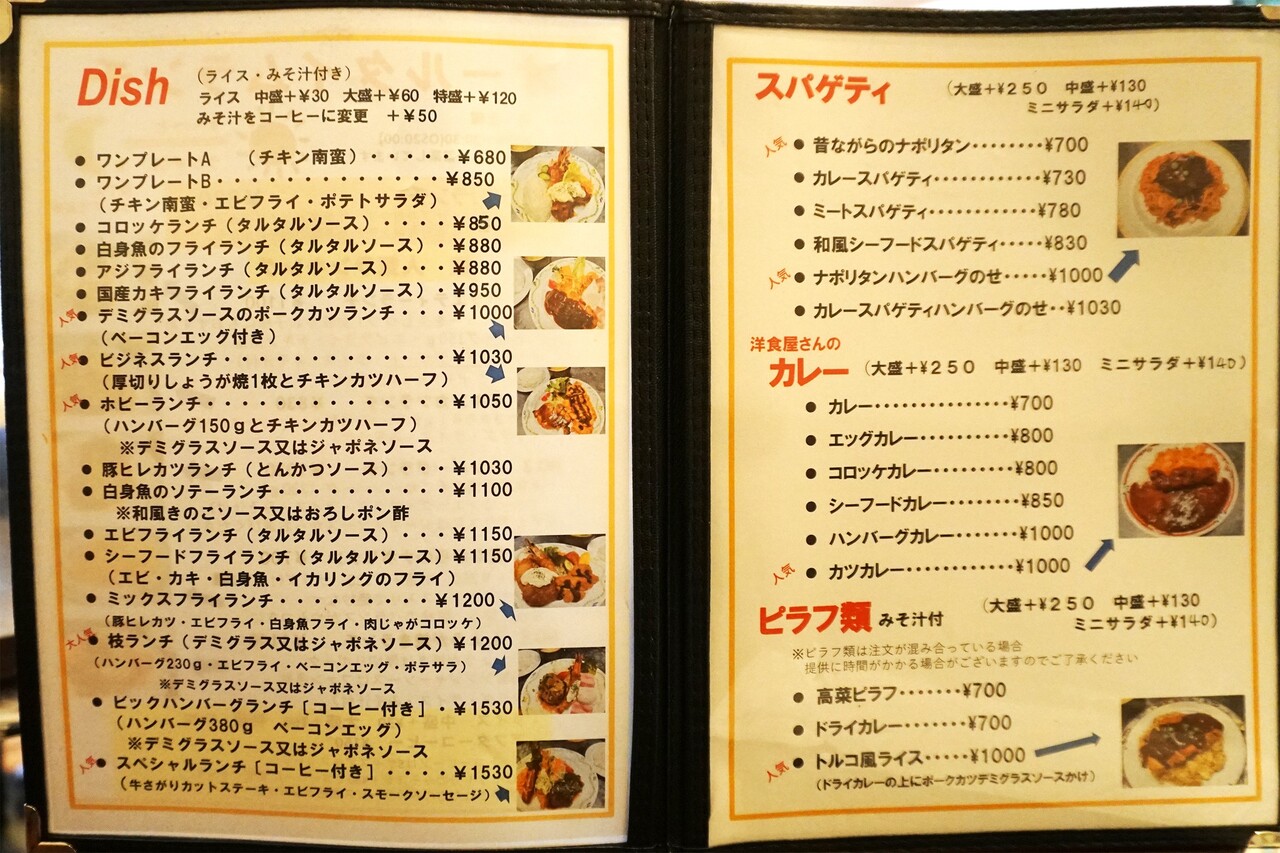 Dish
（ライス・みそ汁付き）
ライス 中盛＋¥30 大盛＋¥60 特盛＋¥120
みそ汁をコーヒーに変更 ＋¥50
● ワンプレートA （チキン南蛮）・・・・・¥680
● ワンプレートB・・・・・・・・・・・・・¥850
（チキン南蛮・エビフライ・ポテトサラダ）
● コロッケランチ（タルタルソース）・・・・¥850
● 白身魚のフライランチ（タルタルソース）・・¥880
● アジフライランチ（タルタルソース）・・・¥880
● 国産カキフライランチ（タルタルソース）・・¥950
人気 ● デミグラスソースのポークカツランチ・・・¥1000
（ベーコンエッグ付き）
人気 ● ビジネスランチ・・・・・・・・・・・・・¥1030
（厚切りしょうが焼1枚とチキンカツハーフ）
人気 ● ホビーランチ・・・・・・・・・・・・・・¥1050
（ハンバーグ150gとチキンカツハーフ）
※デミグラスソース又はジャポネソース
● 豚ヒレカツランチ（とんかつソース）・・・¥1030
● 白身魚のソテーランチ・・・・・・・・・・¥1100
※和風きのこソース又はおろしポン酢
● エビフライランチ（タルタルソース）・・・¥1150
● シーフードフライランチ（タルタルソース）¥1150
（エビ・カキ・白身魚・イカリングのフライ）
● ミックスフライランチ・・・・・・・・・¥1200
（豚ヒレカツ・エビフライ・白身魚フライ・肉じゃがコロッケ）
大人気 ● 枝ランチ（デミグラス又はジャポネソース）¥1200
（ハンバーグ230g・エビフライ・ベーコンエッグ・ポテサラ）
※デミグラスソース又はジャポネソース
● ビックハンバーグランチ［コーヒー付き］・¥1530
（ハンバーグ380g ベーコンエッグ）
※デミグラスソース又はジャポネソース
人気 ● スペシャルランチ［コーヒー付き］・・・・¥1530
（牛さがりカットステーキ・エビフライ・スモークソーセージ）
スパゲティ
（大盛＋¥250 中盛＋¥130
ミニサラダ＋¥140）
人気 ● 昔ながらのナポリタン・・・・・・・・¥700
● カレースパゲティ・・・・・・・・・・・・¥730
● ミートスパゲティ・・・・・・・・・・・・¥780
● 和風シーフードスパゲティ・・・・・¥830
人気 ● ナポリタンハンバーグのせ・・・・・¥1000
● カレースパゲティハンバーグのせ・・¥1030
洋食屋さんの
カレー （大盛＋¥250 中盛＋¥130 ミニサラダ＋¥140）
● カレー・・・・・・・・・・・・・・・¥700
● エッグカレー・・・・・・・・・・¥800
● コロッケカレー・・・・・・・・・¥800
● シーフードカレー・・・・・・・・¥850
● ハンバーグカレー・・・・・・・・¥1000
人気 ● カツカレー・・・・・・・・・・・・¥1000
ピラフ類 みそ汁付 （大盛＋¥250 中盛＋¥130
ミニサラダ＋¥140）
※ピラフ類は注文が混み合っている場合
提供に時間がかかる場合がございますのでご了承ください
● 高菜ピラフ・・・・・・・¥700
● ドライカレー・・・・・・・¥700
人気 ● トルコ風ライス・・・・・¥1000
（ドライカレーの上にポークカツデミグラスソースかけ）